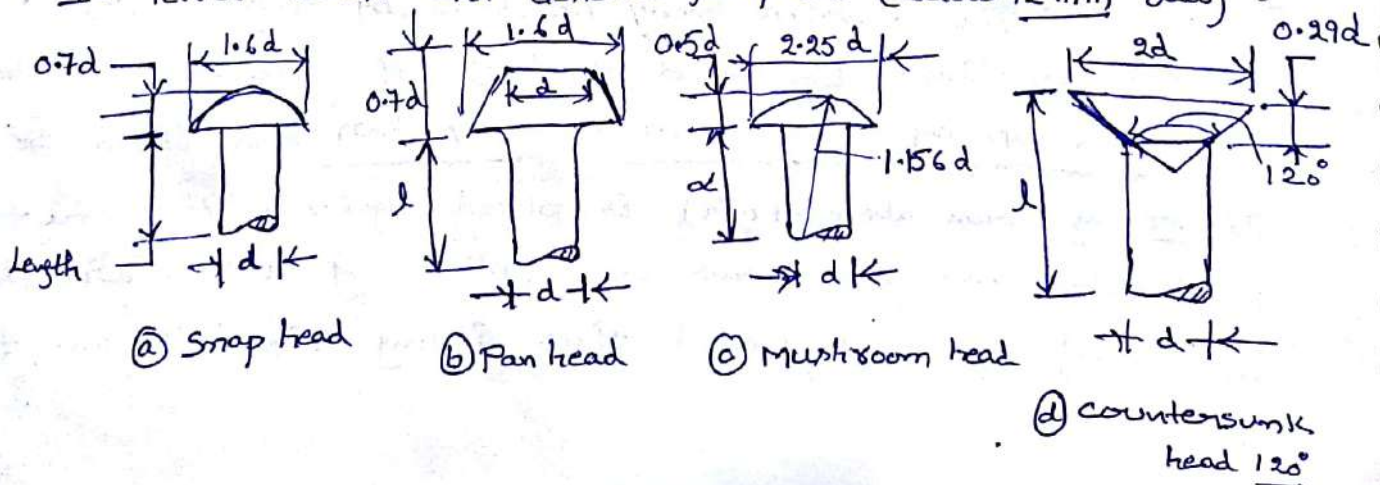 1.6d
0.7d
Length
d
ⓐ Snap head
1.6d
0.7d
d
l
d
ⓑ Pan head
0.5d
2.25 d
1.156 d
d
d
ⓒ Mushroom head
2d
0.29d
120°
l
d
ⓓ countersunk
head 120°